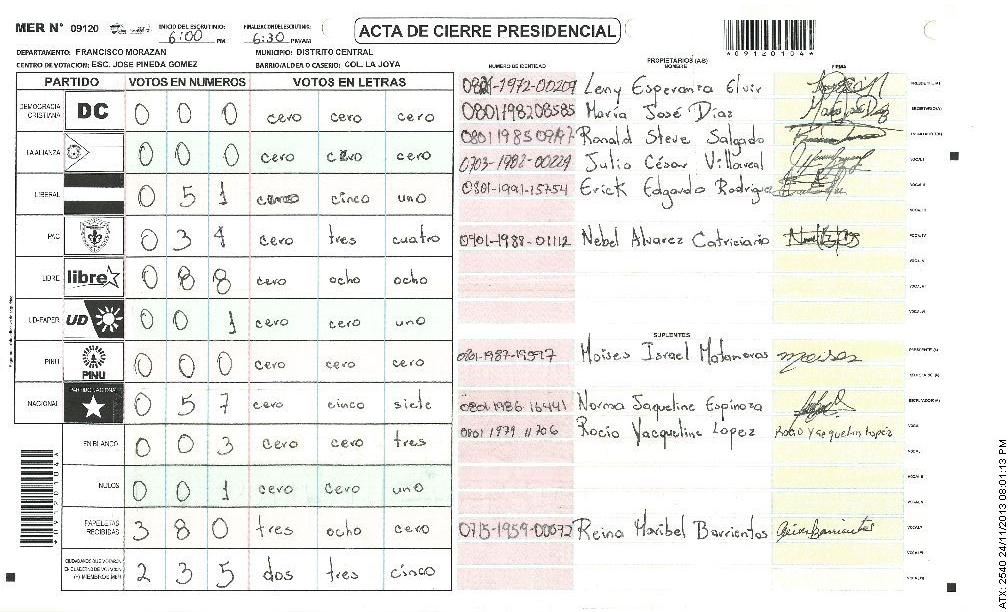 MER N° 09120 INICIO DEL ESCRUTINIO: 6:00 PM FINALIZACION ESCRUTINIO: 6:30 PM/AM ACTA DE CIERRE PRESIDENCIAL *09120104*
DEPARTAMENTO: FRANCISCO MORAZAN MUNICIPIO: DISTRITO CENTRAL
CENTRO DE VOTACION: ESC. JOSE PINEDA GOMEZ BARRIO/ALDEA O CASERIO: COL. LA JOYA
PARTIDO VOTOS EN NUMEROS VOTOS EN LETRAS
DEMOCRACIA CRISTIANA DC 0 0 0 cero cero cero
LA ALIANZA 0 0 0 cero cero cero
LIBERAL 0 5 1 cinco uno
PAC 0 3 4 cero tres cuatro
LIBRE libre 0 8 8 cero ocho ocho
UD-FAPER UD 0 0 1 cero cero uno
PINU PINU 0 0 0 cero cero cero
NACIONAL PARTIDO NACIONAL 0 5 7 cero cinco siete
EN BLANCO 0 0 3 cero cero tres
NULOS 0 0 1 cero cero uno
PAPELETAS RECIBIDAS 3 8 0 tres ocho cero
2 3 5 dos tres cinco
*09120104*
PROPIETARIOS (AS)
NUMERO DE IDENTIDAD NOMBRE FIRMA
0801-1972-00209 Leny Esperanza Elvir PRESIDENTE (A)
0801198208585 María José Díaz SECRETARIO(A)
Ronald Steve Salgado
0703-1982-00229 Julio César Villareal VOCAL I
0801-1991-15754 Erick Edgardo Rodriguez VOCAL II
VOCAL III
0901-1988-01112 Nebel Alvarez VOCAL IV
VOCAL V
VOCAL VI
SUPLENTES
Moises Israel Matamoros moises PRESIDENTE (A)
SECRETARIO (A)
0801-1986-16441 Norma Jaqueline Espinoza ESCRUTADOR (A)
0801 1979 11706 Rocio Yacqueline Lopez Rocio Yacquelin Lopez
VOCAL II
0715-1959-00072 Reina Maribel Barrientos Reina Barrientos
ATX: 2540 24/11/2013 08:01:13 PM